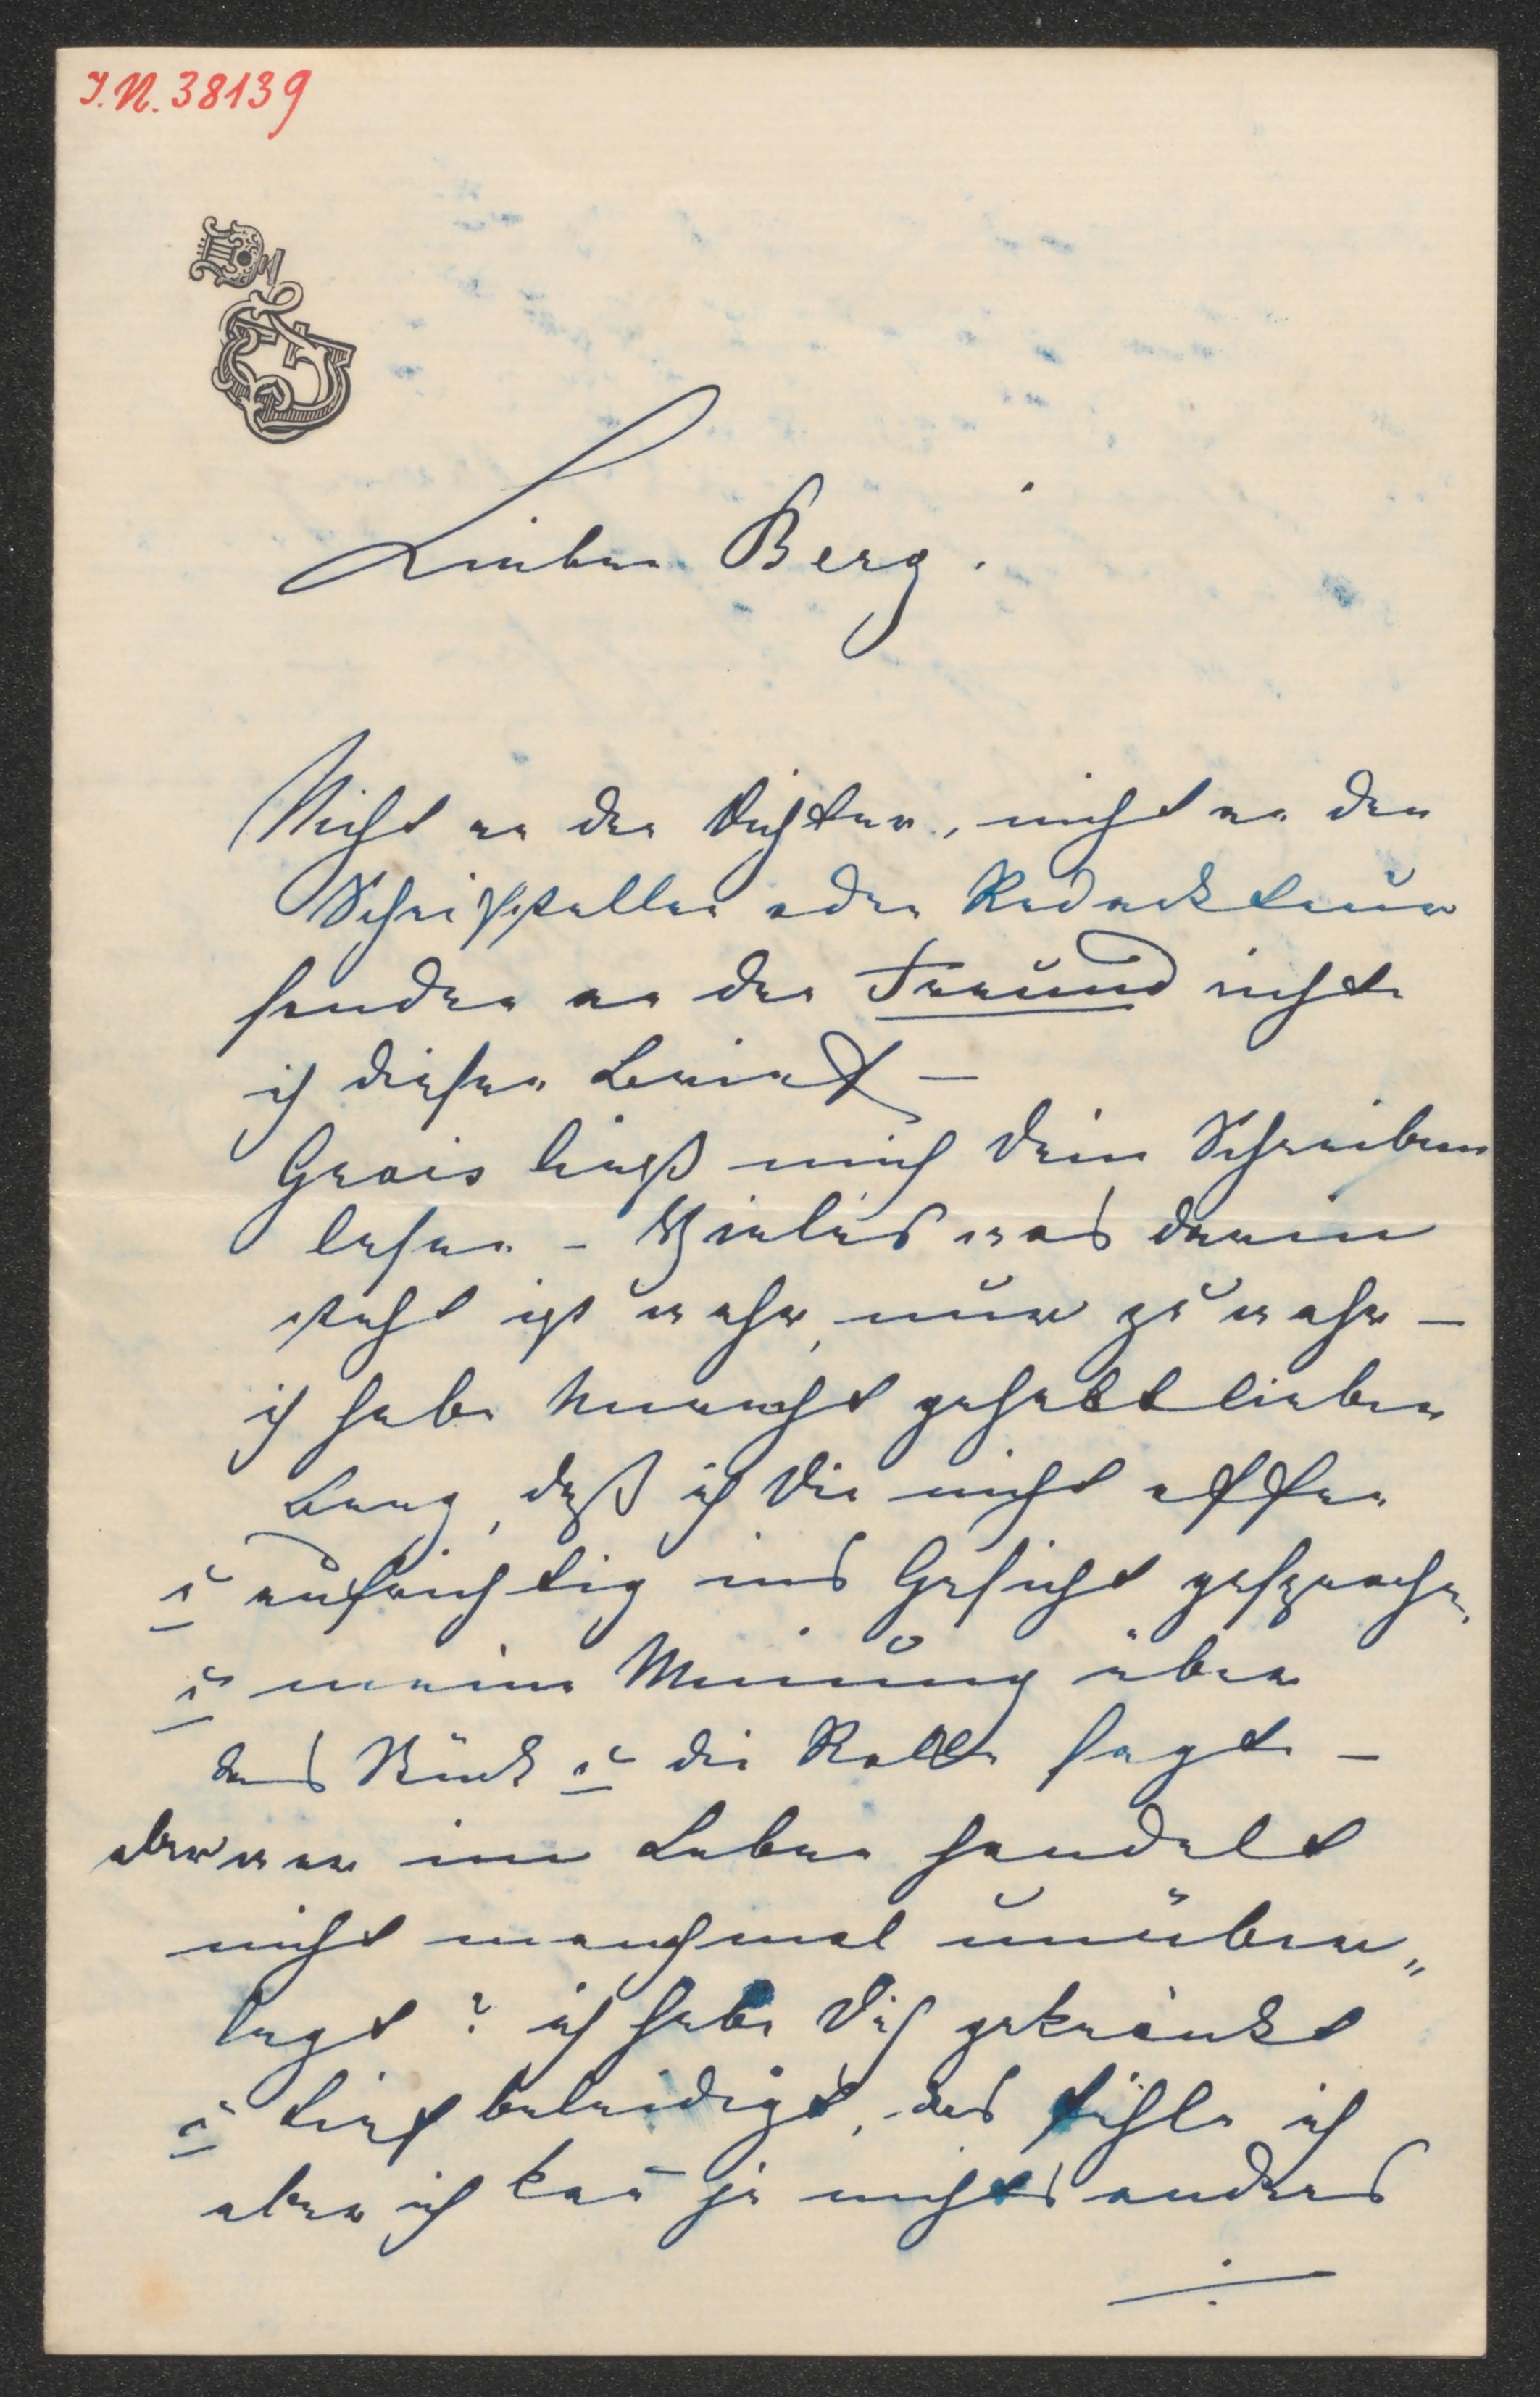 I.N. 38139
Lieber Berg!
Nicht an den Dichter, nicht an den
Schriftsteller oder Redackteur
sondern an den Freund richte
ich diesen Brief —
Grois ließ mich Dein Schreiben
lesen – Vieles was darin
steht ist wahr, nur zu wahr —
ich habe Unrecht gehabt lieber
Berg, daß ich Dir nicht offen
u aufrichtig ins Gesicht gesprochen,
u meine Meinung über
das Stück u die Rolle sagte —
aber wer im Leben handelt
nicht manchmal unüber„
legt? ich habe Dich gekränkt
u tief beleidigt, das fühle ich
aber ich kan̄ ja nichts anders